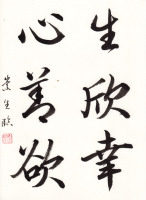 生欣幸
心善欲